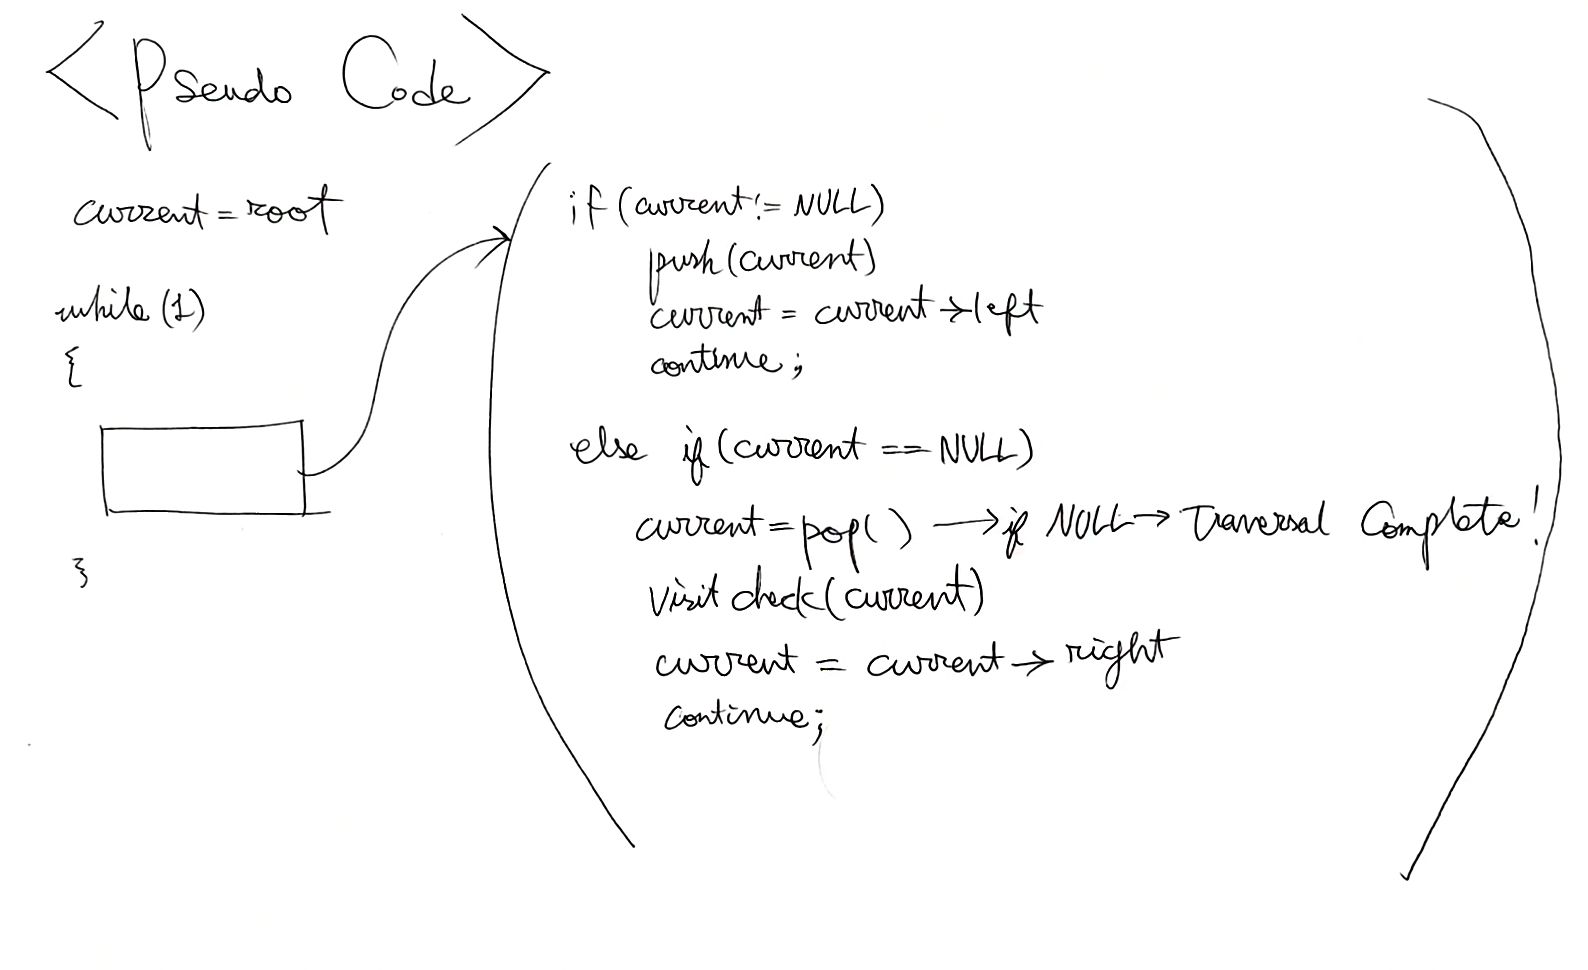 <Pseudo Code>
current = root
while (1)
{
}
if (current != NULL)
push (current)
current = current → left
continue ;
else if (current == NULL)
current = pop( ) → if NULL → Traversal Complete!
Visit check (current)
current = current → right
continue;